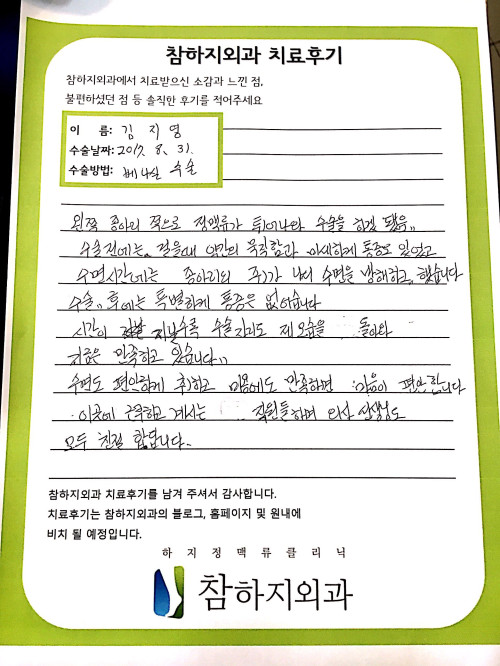 참하지외과 치료후기
참하지외과에서 치료받으신 소감과 느낀 점,
불편하셨던 점 등 솔직한 후기를 적어주세요
이 름: 김지영
수술날짜: 2017. 8. 31.
수술방법: 베나실 수술
왼쪽 종아리 쪽으로 정맥류가 튀어나와 수술을 하게 됐음..
수술전에는 걸을때 약간의 묵직함과 미세하게 통증도 있었고
수면시간에는 종아리의 쥐가 나서 수면을 방해하고, 했습니다
수술 후에는 특별하게 통증은 없었습니다
시간이 지날수록 수술자리도 제모습을 돌아와
지금은 만족하고 있습니다..
수면도 편안하게 취하고 미용에도 만족하며 마음이 편안합니다
이곳에 근무하고 계시는 직원들하며 의사 선생님도
모두 친절 합니다.
참하지외과 치료후기를 남겨 주셔서 감사합니다.
치료후기는 참하지외과의 블로그, 홈페이지 및 원내에
비치 될 예정입니다.
하지정맥류클리닉
참하지외과